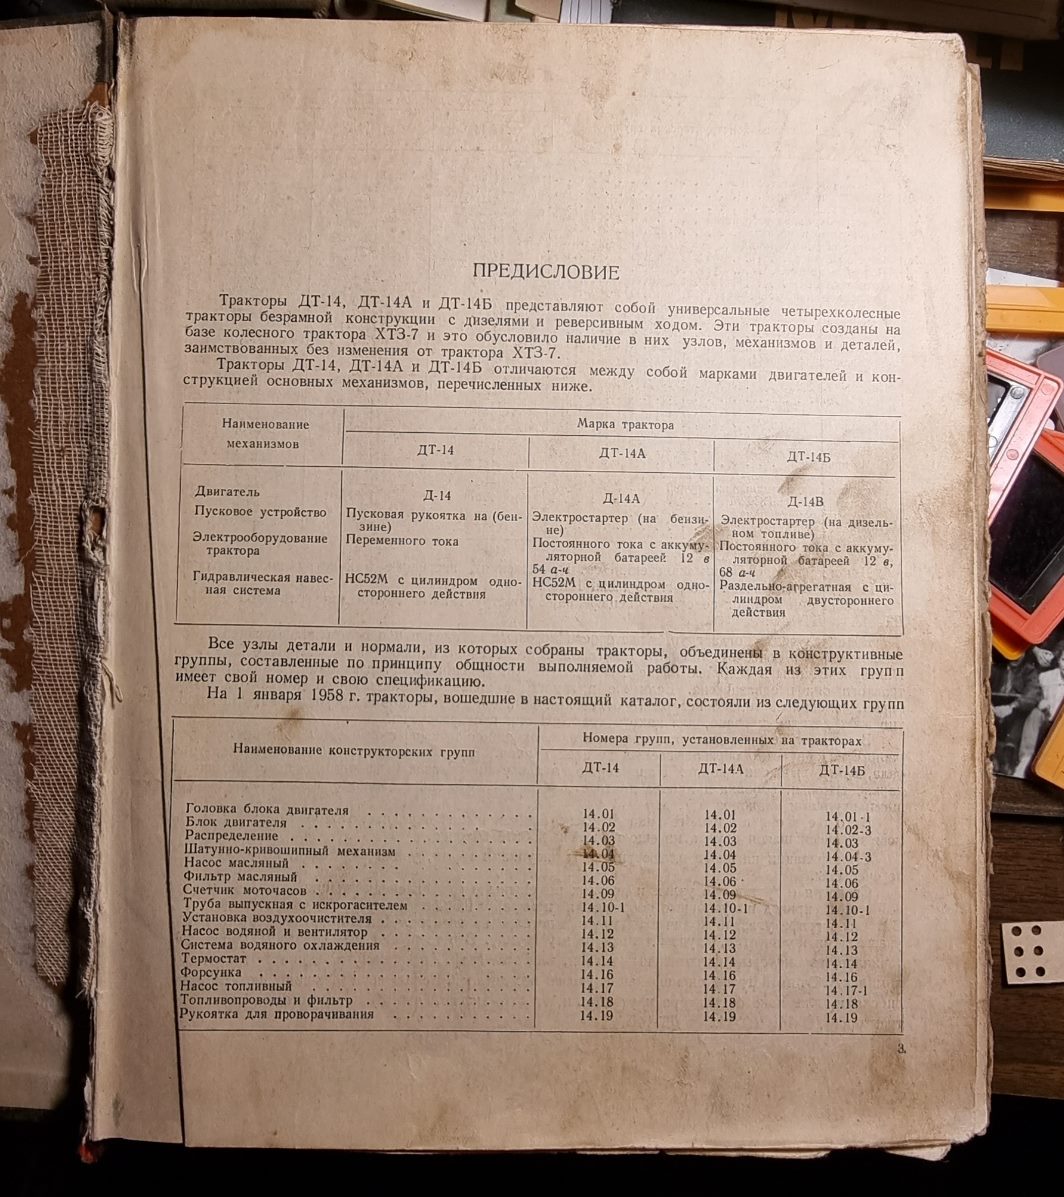 ПРЕДИСЛОВИЕ
Тракторы ДТ-14, ДТ-14А и ДТ-14Б представляют собой универсальные четырехколесные
тракторы безрамной конструкции с дизелями и реверсивным ходом. Эти тракторы созданы на
базе колесного трактора ХТЗ-7 и это обусловило наличие в них узлов, механизмов и деталей,
заимствованных без изменения от трактора ХТЗ-7.
Тракторы ДТ-14, ДТ-14А и ДТ-14Б отличаются между собой марками двигателей и кон-
струкцией основных механизмов, перечисленных ниже.
Наименование механизмов Марка трактора
ДТ-14 ДТ-14А ДТ-14Б
Двигатель Д-14 Д-14А Д-14В
Пусковое устройство Пусковая рукоятка на (бен- Электростартер (на бензи- Электростартер (на дизель-
зине) не) ном топливе)
Электрооборудование Переменного тока Постоянного тока с аккуму- Постоянного тока с аккуму-
трактора ляторной батареей 12 в ляторной батареей 12 в,
54 а-ч 68 а-ч
Гидравлическая навес- НС52М с цилиндром одно- НС52М с цилиндром одно- Раздельно-агрегатная с ци-
ная система стороннего действия стороннего действия линдром двустороннего
действия
Все узлы детали и нормали, из которых собраны тракторы, объединены в конструктивные
группы, составленные по принципу общности выполняемой работы. Каждая из этих групп
имеет свой номер и свою спецификацию.
На 1 января 1958 г. тракторы, вошедшие в настоящий каталог, состояли из следующих групп
Наименование конструкторских групп Номера групп, установленных на тракторах
ДТ-14 ДТ-14А ДТ-14Б
Головка блока двигателя . . . . . . . . . . . . 14.01 14.01 14.01-1
Блок двигателя . . . . . . . . . . . . . . . . 14.02 14.02 14.02-3
Распределение . . . . . . . . . . . . . . . . . 14.03 14.03 14.03
Шатунно-кривошипный механизм . . . . . . . . . 14.04 14.04 14.04-3
Насос масляный . . . . . . . . . . . . . . . . 14.05 14.05 14.05
Фильтр масляный . . . . . . . . . . . . . . . 14.06 14.06 14.06
Счетчик моточасов . . . . . . . . . . . . . . . 14.09 14.09 14.09
Труба выпускная с искрогасителем . . . . . . . . 14.10-1 14.10-1 14.10-1
Установка воздухоочистителя . . . . . . . . . . . 14.11 14.11 14.11
Насос водяной и вентилятор . . . . . . . . . . . 14.12 14.12 14.12
Система водяного охлаждения . . . . . . . . . . 14.13 14.13 14.13
Термостат . . . . . . . . . . . . . . . . . . . 14.14 14.14 14.14
Форсунка . . . . . . . . . . . . . . . . . . . 14.16 14 16 14.16
Насос топливный . . . . . . . . . . . . . . . . 14.17 14 17 14.17-1
Топливопроводы и фильтр . . . . . . . . . . . . 14.18 14.18 14.18
Рукоятка для проворачивания . . . . . . . . . . 14.19 14.19 14.19
3.